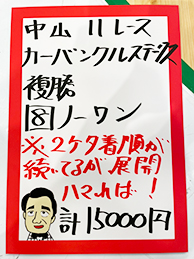 中山 11レース
カーバンクルステークス
複勝
⑧ノーワン
※2ケタ着順が
続いてるが展開
ハマれば!
計15000円